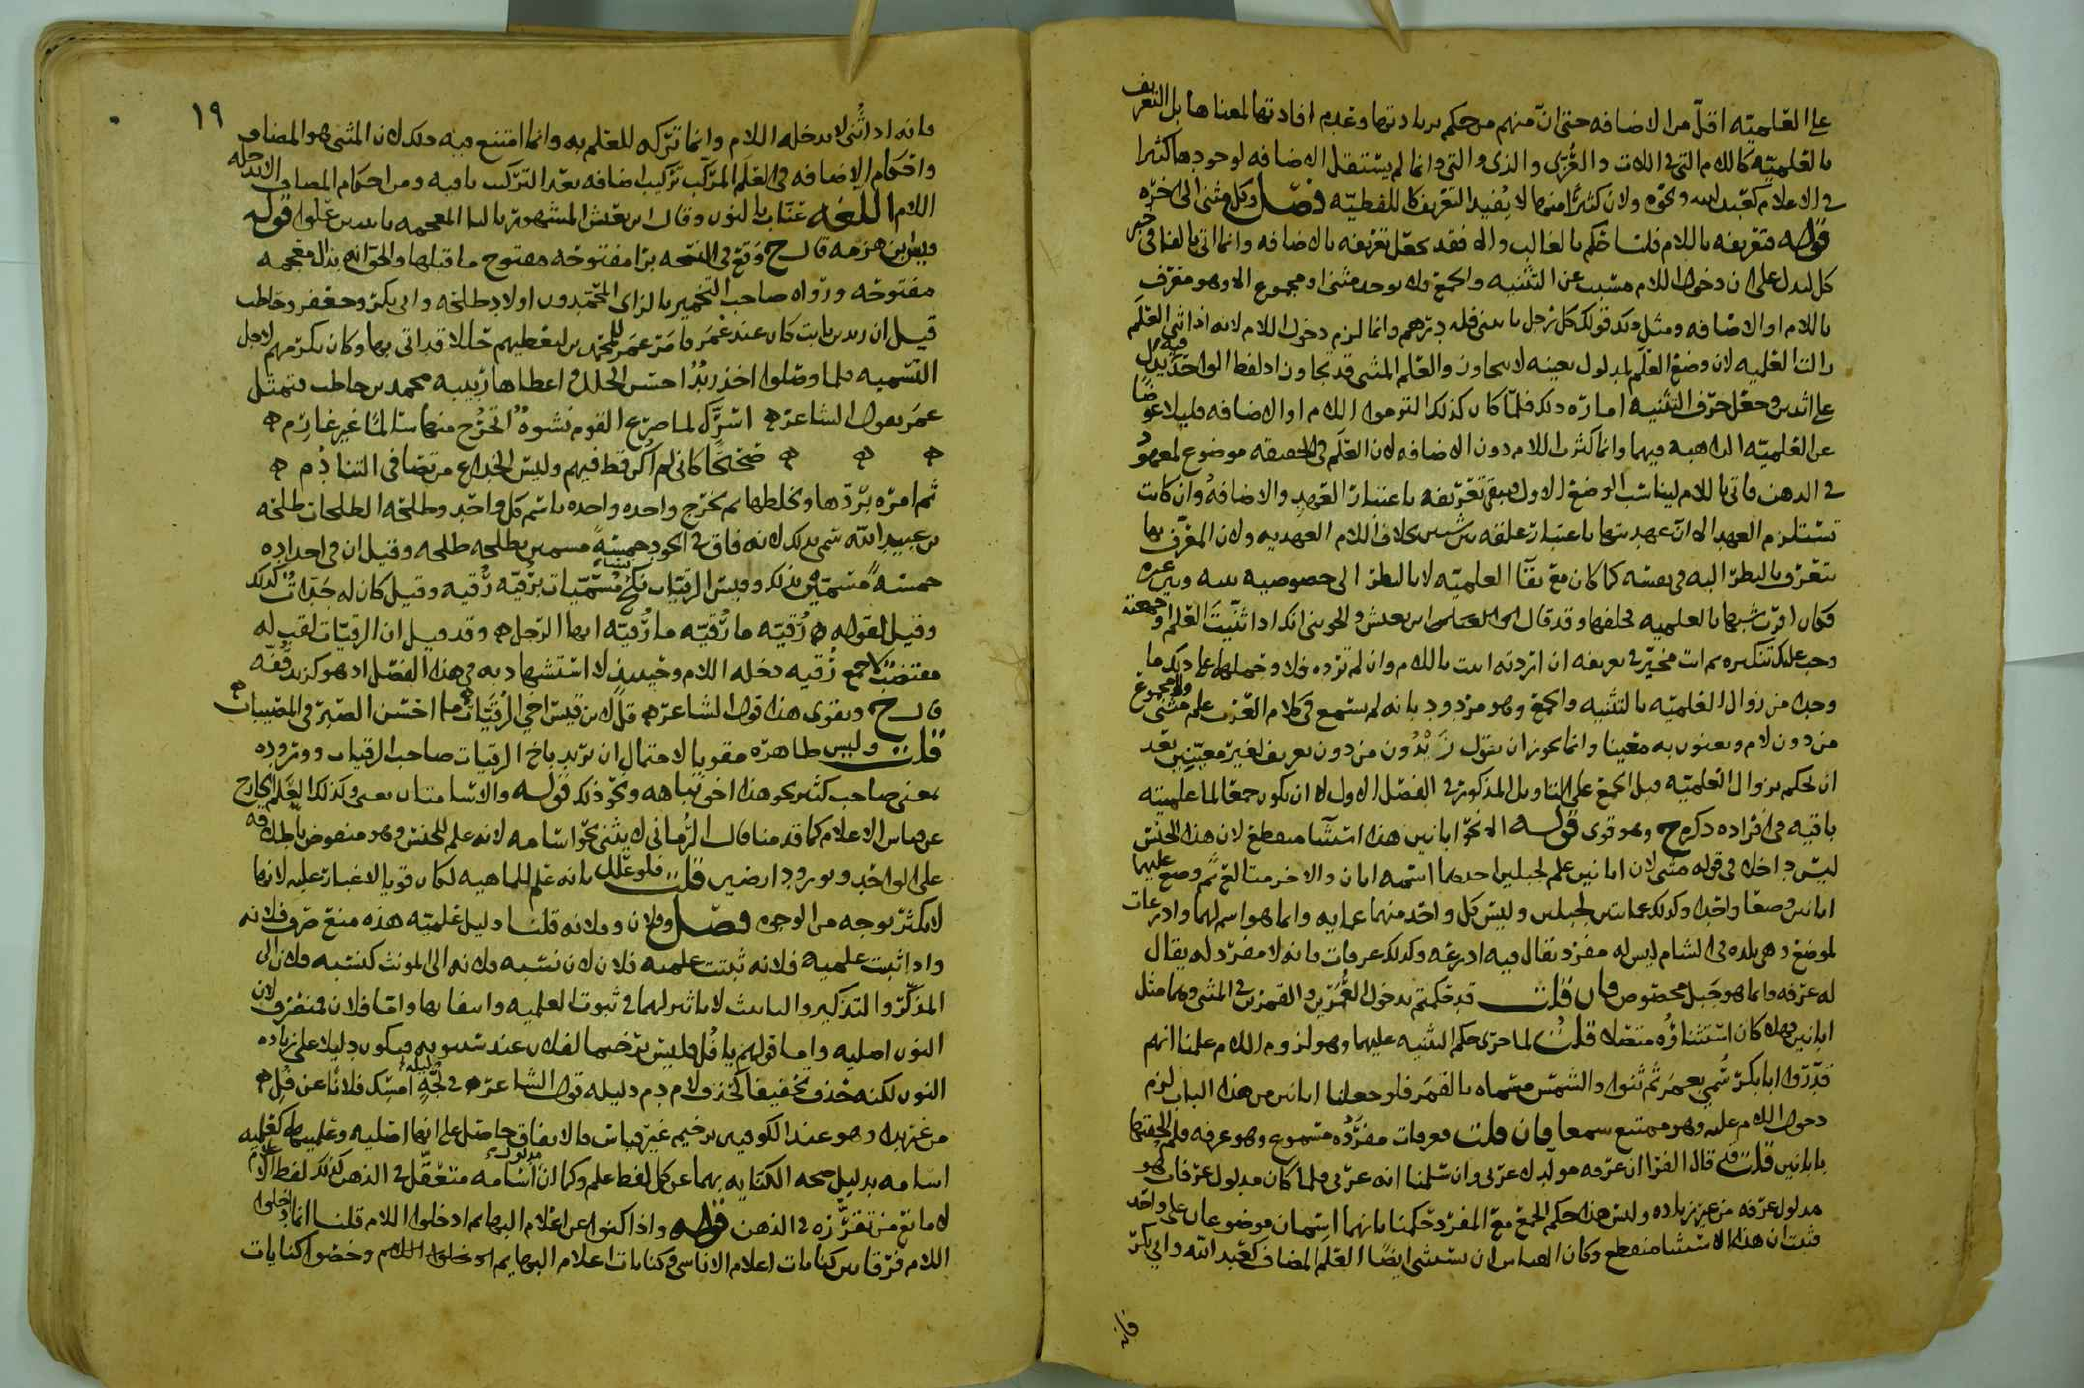 على العلميه اقل من الاضافه حتى انّ منهم من حكم بزيادتها وعدم افادتها لمعناها بل التعريف
بالعلميّه كاللام التي في اللات والعُزّى والذي والتي وانما لم يستقل الاضافه لوجودها كثيرا
في الاعلام كعبد الله ونحوه ولان كثيرًا منها لا يُفيد التعريف كاللفظيّه فصل وكل مثنى الى اخره
قوله فتعريفه باللام قلنا حكم بالغالب والا فقد يحصل تعريفه بالاضافه وانما اتى بالفا في خبر
كل ليدل على ان دخول اللام مسبب عن التثنيه والجمع ولا يوجد مثنى او مجموع الا وهو معرف
باللام او الاضافه ومثل ذلك قولك كل رجل ياتيني فله درهم وانما لزم دخول اللام لانه اذا ثني العلم
زالت العلميه لان وضع العلم لمدلول بعينه لا يتجاوز والعلم المثنى قد تجاوز اذ لفظ الواحد فيه يدل
على اثنين وجعل حرف التثنيه امارة ذلك فلمّا كان كذلك التزموا اللام او الاضافه قليلا عوضًا
عن العلميّه الذاهبه فيهما وانما كثرت اللام دون الاضافه لان العلم في الحقيقه موضوع لمعهود
في الذهن فاتي باللام ليناسب الوضع الاول فيبقى تعريفه باعتبار العهد والاضافهُ وان كانت
تستلزم العهد الا انّ عهديتها باعتبار علقه بين شيين بخلاف اللام العهديه ولان المعرّف بها
يتعرف بالنظر اليه في نفسه كما كان مع بقآ العلميّه لا بالنظر الى خصوصيه بينه وبين غيره
فكان اقرب شبها بالعلميه فخلفها وقد قال ابن يعيش والجويني انك اذا ثنّيتَ العلم او جمعته
وجب عليك تنكيره ثم انت مخيّر في تعريفه ان اردته اتيت باللام وان لم ترده فلا
وجدا من زوال العلميّه بالتثنيه والجمع وهو مردود بانه لم يسمع في كلام العرب علم مثنى ولا مجموع
من دون لام ويعنون به معينا وانما يجوز ان يقول زَيْدُون من دون تعريف لغير معيّنين بعد
ان يحكم بزوال العلميّه قبل الجمع على التاويل المذكور في الفصل الاول لا ان يكون جمعًا لما علميته
باقيه في افراده ذكره ح وهو قوى قوله الا نحو ابانين هذا استثنآ منقطع لان هذا الجنس
ليس داخلا في قوله مثنى لان ابانين علم لجبلين احدهما اسمه ابان والاخر متالع ثم وضع عليهما
ابانين وضعا واحدا وكذلك عمايتين لجبلين وليس كل واحد منهما عمايه وانما هو اسم لهما واذرعات
لموضع وهي بلده في الشام ليس له مفرد يقال فيه اذرعه وكذلك عرفات فانه لا مفرد له يقال
له عرفه وانما هو جبل مخصوص فان قلت قد حكمتم بدخول العُمَرين والقمرين في المثنى وهما مثل
ابانين فهلا كان استثناؤه متصلا قلت لما جرى حكم التثنيه عليهما وهو لزوم اللام علمنا انهم
قدّروا ابا بكرٍ سُمي بعمر ثم ثنوا والشمس مسماه بالقمر فلو جعلنا ابانين من هذا الباب لزم
دخول اللام عليه وهو ممتنع سمعا فان قلت فعرفات مفرَدُه مسموع وهو عرفه فلم الحقتها
بابانين قلت قد قال الفرّا ان عرفه مولد لا عربي وان سلمنا انه عربي فلما كان مدلول عرفات هو
مدلول عرفه من غير زياده وليس هذا حكم الجمع مع المفرد حكمنا بانهما اسمان موضوعان على واحد
فثبت ان هذا الاستثنا منقطع وكان القياس ان يستثنى ايضًا العلم المضاف كعبد الله وابي بكر
فانه
١٩
فانه اذا ثُني لا يدخله اللام وانما تركه للعلم به وانما امتنع فيه ذلك لان المثنى هو المضاف
واحكام الاضافه في العلم المركّب تركيب اضافه بعد التركيب باقيه ومن احكام المضاف الا يدخله
اللام اللغه عنّاب بالنون وقال ابن يعيش المشهور بالتا المعجمه باثنتين من علوا قوله
وبيض بن هزمه قال ح وقع في النسخه بزا مفتوحه مفتوح ما قبلها والحق انه بذال معجمه
مفتوحه ورواه صاحب التخمير بالزاى المحمّدون اولاد طلحه وابي بكر وجعفر وحاطب
قيل ان زيد بن ثابت كان عند عُمر فامر عمر للمحمّدين ليعطيهم حُللا قد اتي بها وكان يكرمهم لاجل
التسميه فلما وصلوا اخذ زيدٌ احسن الحلل واعطاها ربيبه محمد بن حاطب فتمثل
عمر بقول الشاعر ۞ اسَرَّكَ لما صرع القوم نشوةٌ اخرُج منها سالمًا غير غارم ۞
۞ ۞ ۞ صَحيحًا كاني لم اكن قط فيهم وليس الخداع مرتضا في التنادُم ۞
ثم امره بردّها وبخلطها ثم يخرج واحده واحده باسم كل واحد وطلحه الطلحات طلحه
بن عبيد الله سُمي بذلك لانه فاق في الجود خمسهً مسمين بطلحه طلحه وقيل ان في اجداده
خمسه مسمّين بذلك وقيس الرقيّات نكح نساء مُسمّيات برقيّه رُقيه وقيل كان له جَدات كذلك
وقيل لقوله ۞ رُقيّه ما رُقيّه ما رُقيّه ايها الرجل ۞ وقد قيل ان الرقيّات لقب له
مقتضب لا جمع رُقيه دخله اللام وحينيذٍ لا استشهاد به في هذا الفصل اذ هو كزيد قُفّه
قال ح ويقوى هذا قول الشاعر ۞ قل لابن قيس اخي الرُقيّات ۞ ما احسن الصبر في المصيبات ۞
قلت وليس ظاهره مقويا لاحتمال ان يُريد باخي الرقيات صاحب الرقيات ووروده
بمعنى صاحب كثير نحو هذا اخو نباهه ونحو ذلك قوله والاسامتان يعنى وكذلك العَلم الخارج
عن قياس الاعلام كما قدمنا قال الرُماني لا يثنى نحو اسامه لانه علم للجنس وهو منقوض باطلاقه
على الواحد وبورود ارضين قلت فلو علل بانه علم للماهيه لكان قويا لا غبار عليه لانها
لا تكثر بوجه من الوجوه فصل وفلان وفلانه قلنا دليل علميّه هذه منع صرف فلانه
واذا ثبت علميه فلانه ثبتت علميه فلان لان نسبه فلانه الى المونث كنسبه فلان الى
المذكّر والتذكير والتانيث لا تاثير لهما في ثبوت العلميه وانتفايها وامّا فلان فمنصرف لان
النون اصليه واما قولهم يا فُل فليس ترخيما لفلان عند سيبويه فيكون دليلا على زياده
النون لكنه حذف تخفيفا كحذف لام دم دليله قول الشاعر ۞ في لجّهٍ امسِك فلانًا عن فُلِ ۞
من غير نداء وهو عند الكوفيين ترخيم غير قياس فالاتفاق حاصل على انها اصليه وعلميتها كعلميه
اسامه بدليل صحه الكنايه بهما عن كل لفظ علم وكما انّ مدلول اسامه متعقّل في الذهن كذلك لفظ الاعلام
لا مانع من تقرّره في الذهن قوله واذا كنوا عن اعلام البهايم ادخلوا اللام قلنا انما ادخلوا
اللام فرقا بين كنايات اعلام الاناسي وكنايات اعلام البهايم وخصّوا كنايات